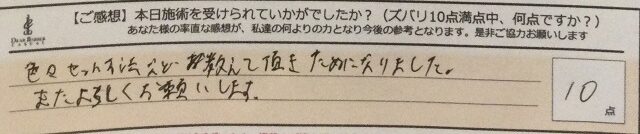 【ご感想】本日施術を受けられていかがでしたか?(ズバリ10点満点中、何点ですか?)
あなた様の率直な感想が、私達の何よりの力となり今後の参考となります。是非ご協力お願いします
色々セット方法など教えて頂きためになりました。
またよろしくお願いします。
10
点